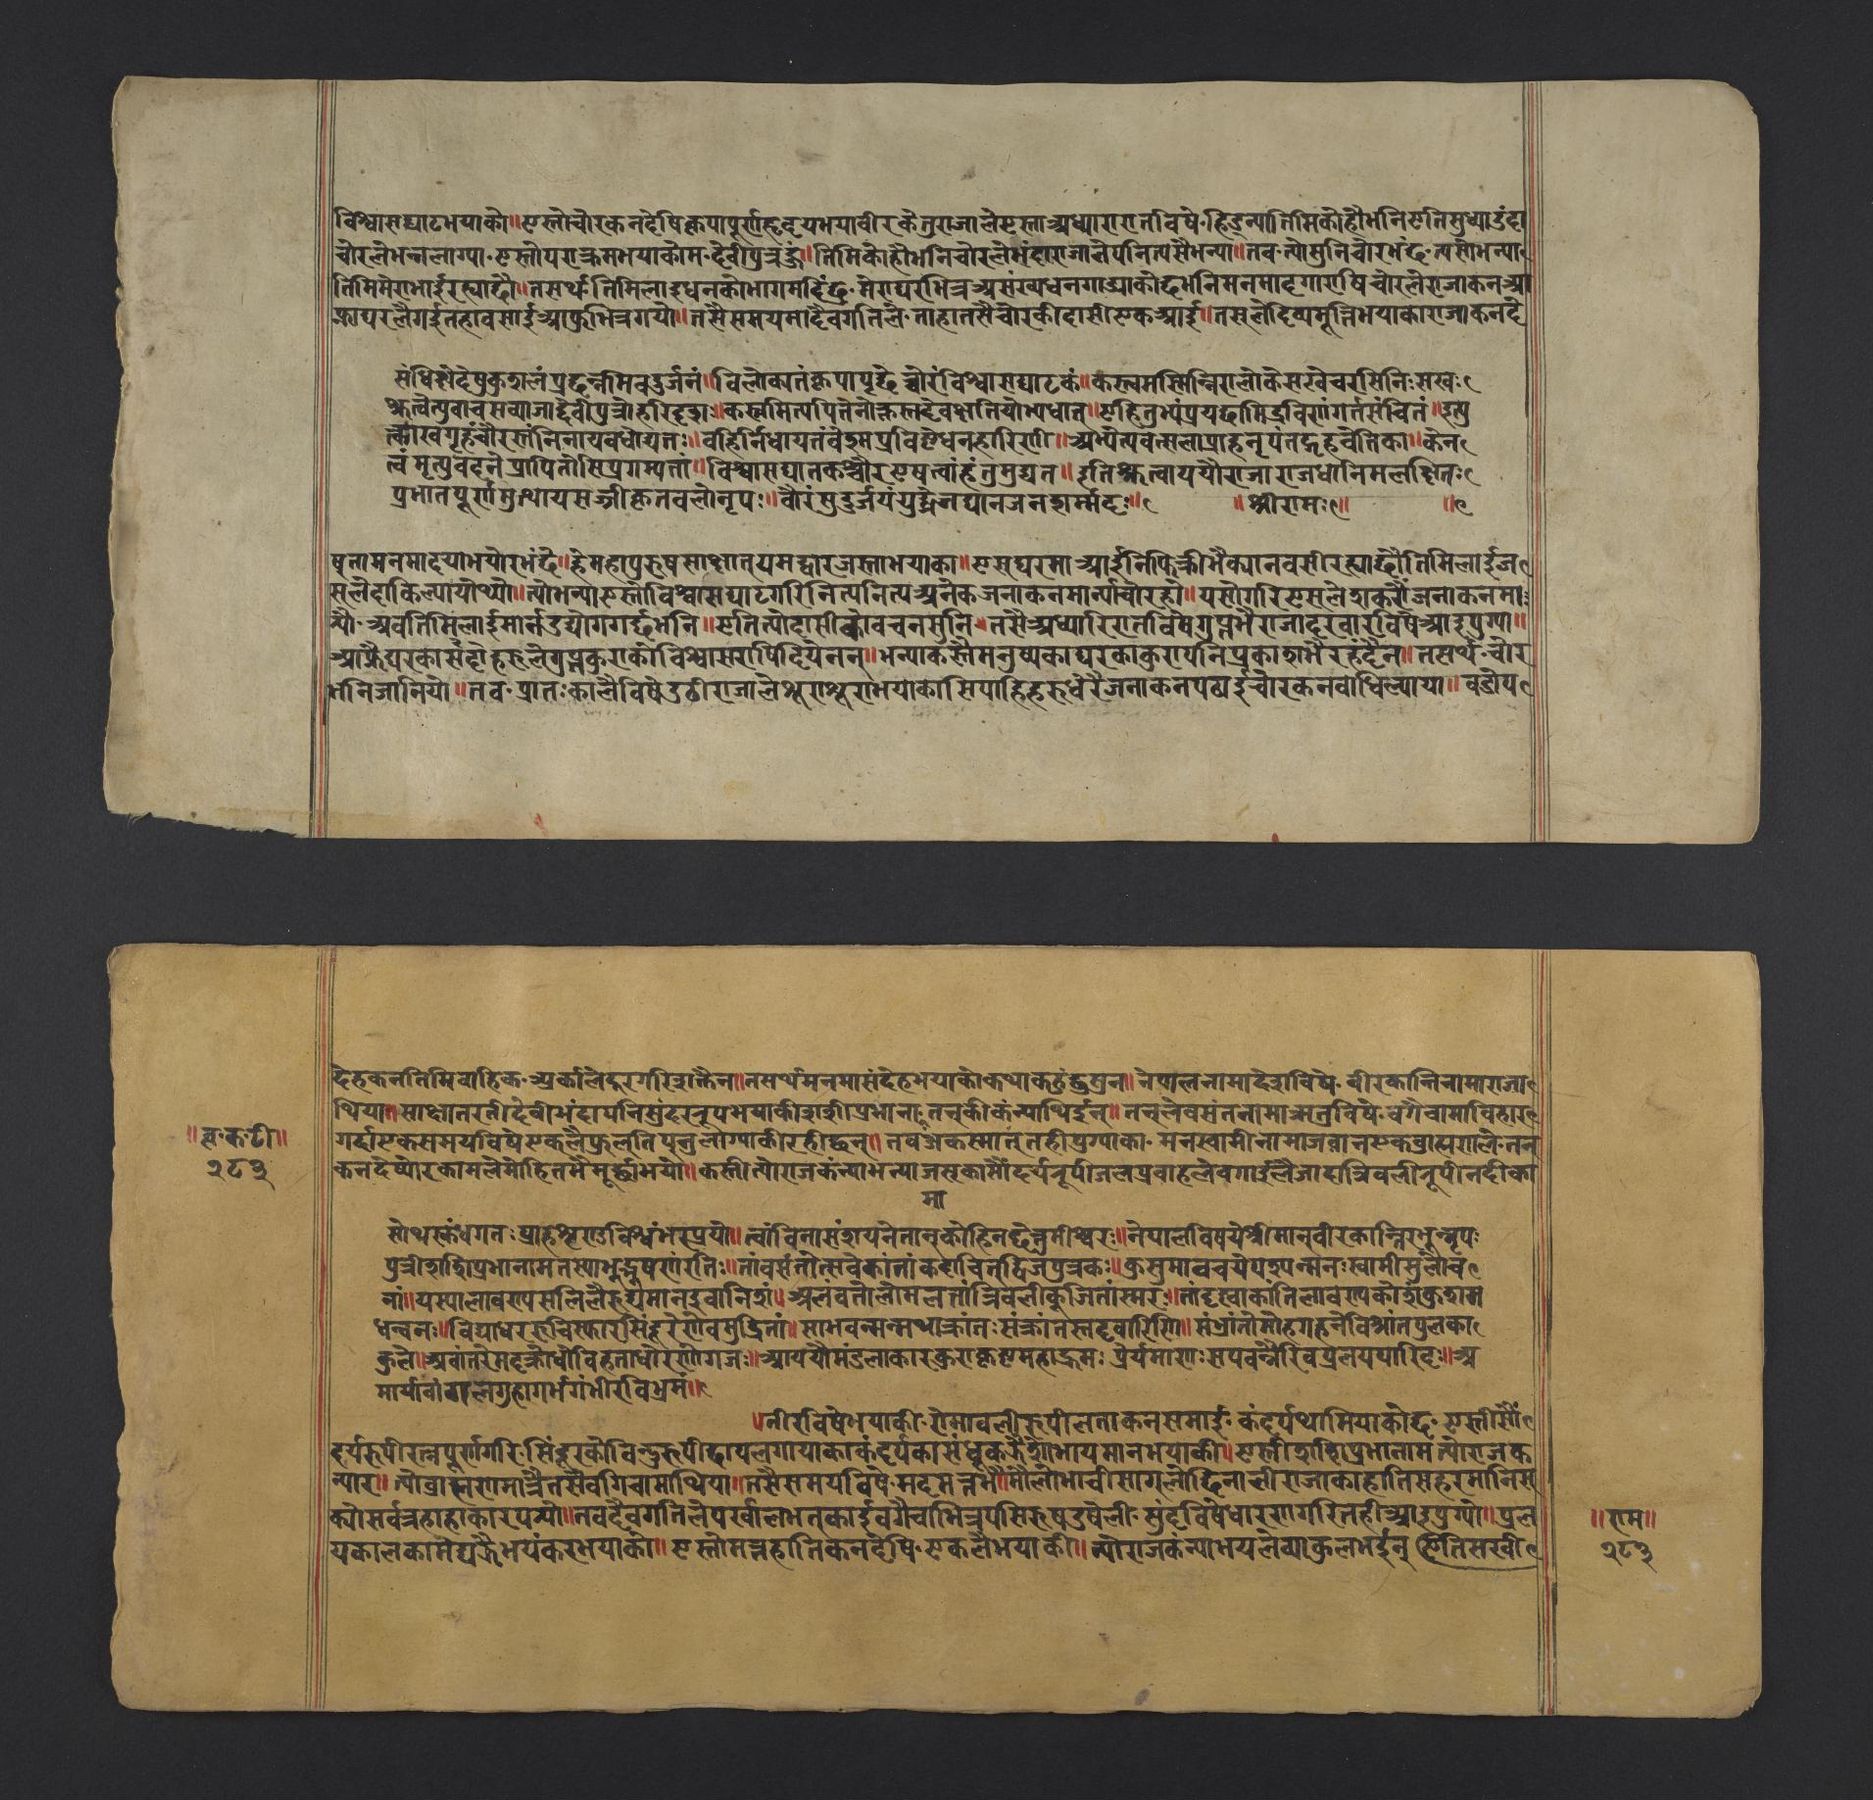 विश्वासघाटभयाको॥एस्तोचोरकनदेषिकृपापूर्णहृदयभयावीरकेतुराजालेएस्ताअध्यारारातविषे·हिड्न्यातिमिकोहौभनिएतिसुध्याउंदा
चोरलेभन्नलाग्या·एस्तोपराक्रमभयाकोम·देवीपुत्रहुं॥तिमिकोहौभनिचोरलेभंदाराजालेपनित्यसैभन्या॥तब·त्योसुनिचोरभंछ·त्यसोभन्या
तिमिमेराभाईरह्याछौ॥तसर्थतिमिलाइधनकोभागमदिंछु·मेराघरभित्रअसंख्यधनगाड्याकोछभनिमनमादगाराषिचोरलेराजाकनआ
फ्नाघरलैगईतहाबसाईआफुभित्रगयो॥तसैसमयमादैवगतिले·ताहातसैचोरकीदासीएकआई॥तसलेदिव्यमूर्त्तिभयाकाराजाकनदे
संधिछेदेषुकुशलंप्रछन्नमिवदुर्जनं॥विलोक्यतंकृपापृछेच्चोरंविश्वासघाटकं॥कस्त्वमस्मिन्निरालोकेसखेचरसिनिःसखः
श्रुत्वेत्युवाचसव्याजाद्देवीपुत्रोहरिदृशः॥कस्त्वमित्यपितेनोक्तस्तदेवक्षतियोभ्यधात्॥एहितुभ्यंप्रयछामिद्रविणंगर्तसंचितं॥इत्यु
त्क्वाखगृहंचौरस्तंनिनायवधोद्यतः॥वहिर्निधायतंवेश्मप्रविष्टेधनहारिणी॥अभ्येत्यवत्सलाप्राहनृपंतद्गृहचेतिका॥केन
त्वंमृत्युवदनेप्रापितोसिप्रगम्यतां॥विश्वासघातकश्चौरएषत्वांहंतुमुद्यत॥इतिश्रुत्वाययौराजाराजधानिमलक्षितः
प्रभातपूर्णमुत्थायसज्जीकृतवलोनृपः॥चौरंसुदुर्जयंयुद्धेजघानजनशर्म्मदः॥ ॥श्रीरामः॥ ॥
षतामनमादयाभयोरभंछे॥हेमहापुरुषसाक्षात्यमद्वारजस्ताभयाका॥एसघरमाआईनिफिक्रीभैक्यानबसीरह्याछौतिमिलाईज
सलेहाकिल्यायोथ्यो॥त्योभन्याएस्तोविश्वासघाटगरिनित्यनित्यअनेकजनाकनमार्न्याचोरहो॥यसोगरिएसलेशकरौंजनाकनमा
र्‍यो·अबतिमिलाईमार्नउद्योगगर्छभनि॥एतित्योदासीकोवचनसुनि॥तसैअध्यारिरातविषेगुप्तभैराजादरवारविषेआइपुग्या॥
आफ्नैघरकासंदाहरुलेगुप्तकुराकोविश्वासराषिदियेनन्॥भन्याकस्तैमनुष्यकाघरकाकुरापनिप्रकाशभैरहंदैन॥तसर्थ·चोर
भनिजानियो॥तब·प्रातःकालैविषेउठीराजालेशूराशूराभयाकासिपाहिहरुधेरैजनाकनपठाईचोरकनबाधिल्याया॥बडोप
॥व्रु·कटी॥
२८३
देहकनतिमिवाहिक·अर्कालेदूरगरिशक्तैन॥तसर्थमनमासंदेहभयाकोकथाकहुंछुसुन॥नेपालनामादेशविषे·वीरकान्तिनामाराजा
थिया॥साक्षात्रतीदेवीभंदापनिसुंदररूपभयाकीशशीप्रभानाम·तनकीकंन्याथिईन्॥तन्लेवसंतनामाऋतुविषे·वगैचामाविहार
गर्दाएकसमयविषेएक्लैफुलतिपन्लाग्याकीरहीछन्॥तबअकस्मात्तहीपुग्याका·मनस्वामीनामाजवानएकब्राह्मणले·तन्
कनदेष्योरकामलेमोहितभैमूर्छाभयो॥कस्तीत्योराजकंन्याभन्याजसकासौंदर्यरूपीजलप्रवाहलेबगाईलैजादात्रिवलीरूपीनदीका
मा
सोथस्कंधगतःप्राहशृणुविश्वंभरप्रयो॥त्वांविनासंशयनेतान्कोहिनछेत्तुमीश्वरः॥नेपालविषयेश्रीमान्वीरकान्तिरभून्नृपः
पुत्रीशशिप्रभानामतस्याभूद्भूषणंरतिः॥तांवसंतोत्सवेकांतांकदाचित्द्विजपुत्रकः॥कुसुमावचयेयत्पन्मनःस्वामीसुलोच
नां॥यस्यालावण्यसलिलैरुद्यमानइवानिशं॥अलंवतोलोमलतांत्रिवलीकूजितांस्मरः॥तांदृष्ट्वाकांतिलावण्यकोशंकुशम
धन्वनः॥विद्याधररुचिस्फारसिंदूरेणेवमुद्रितां॥साभवन्मन्मथाक्रांतःसंक्रांतस्तद्दवारिणि॥संभ्रांतोमोहगहनेविश्रांतपुलका
कुले॥अत्रांतरेमदक्रोधोविहताधोरणोगजः॥आययौमंडलाकारकराकृष्टमहाद्रुमः॥प्रेर्यमाणःसपवनैरिवप्रलयपारिदः॥अ
मार्यावांवालगुहागर्भगंभीरविभ्रमं॥
तीरविषेभयाकी·रोमावलीरूपीलताकनसमाई·कंदर्पथामियाकोछ·एस्तीसौं
दर्यरूपीरत्नपूर्णगरि·सिंदूरकोविन्दुरूपीछापलगायाकाकंदर्पकासंधूकझैंशोभायमानभयाकी॥एस्तीशशिप्रभानामत्योराजक
न्यार॥त्योब्राह्मणोमात्रैतसैवगिचामाथिया॥तसैसमयविषे·मदमत्तभैमौलोभाचीसागुलोछिनालीराजाकाहातिसहरमानिस
क्योसर्वत्रहाहाकारपर्‍यो॥तबदैवगतिलेपर्खालभत्काईवगैचाभित्रपसिरूषउषेली·सुंढविषेधारणगरितहीआइपुग्यो॥प्रल
यकालकामेघझैंभयंकरभयाको॥एस्तोमत्तहात्तिकनदेषि·एक्लैभयाकी॥त्योराजकंन्याभयलेव्याकुलभईन्एतिसखी
॥राम॥
२८३